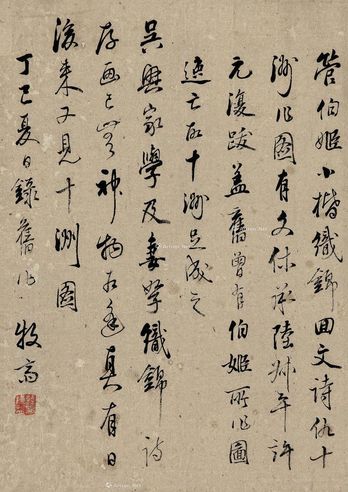 管伯姬小楷織錦回文詩仇十
洲作圖有文休承陸叔平許
元復跋蓋舊曾有伯姬所作圖
逸亡而十洲足成之
吳興家學及妻孥織錦詩
存畫已無神物相逢真有日
後來又見十洲圖
丁巳夏日錄舊作 牧齋